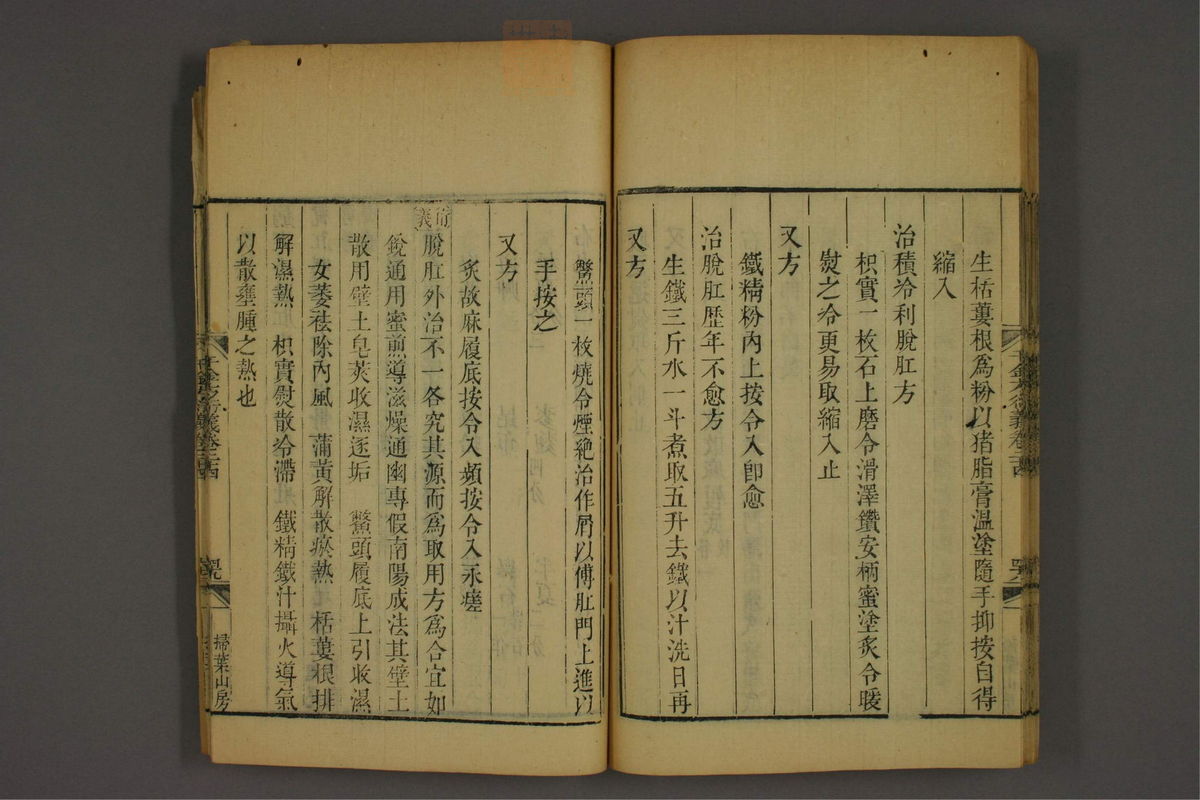 生栝蔞根爲粉以猪脂膏溫塗隨手抑按自得
縮入
治積冷利脫肛方
枳實一枚石上磨令滑澤鑽安柄蜜塗炙令暖
熨之冷更易取縮入止
又方
鐵精粉內上按令入卽愈
治脫肛歷年不愈方
生鐵三斤水一斗煮取五升去鐵以汁洗日再
又方
鱉頭一枚燒令煙絶治作屑以傅肛門上進以
手按之
又方
炙故麻履底按令入頻按令入永瘥
衍義
脫肛外治不一各究其源而爲取用方爲合宜如
銳通用蜜煎導滋燥通幽專假南陽成法其壁土
散用壁土皂莢收濕逐垢 鱉頭履底上引收濕
女萎祛除內風 蒲黃解散瘀熱 栝蔞根排
解濕熱 枳實熨散冷滯 鐵精鐵汁攝火導氣
以散壅腫之熱也
千金方衍義卷二十四
掃葉山房